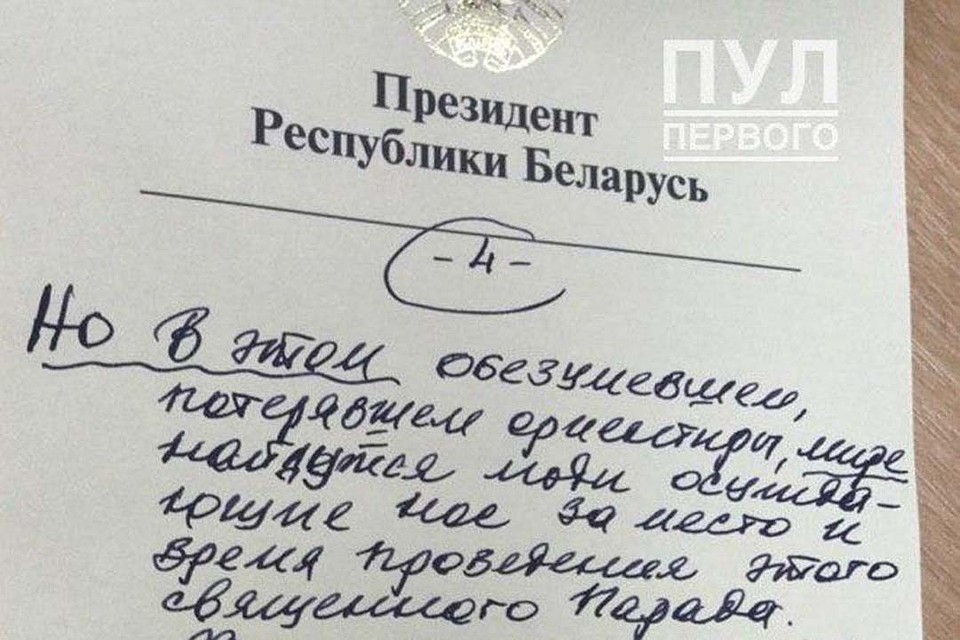 ПУЛ
ПЕРВОГО
Президент
Республики Беларусь
- 4 -
Но в этом обезумевшем,
потерявшем ориентиры, мире
найдутся люди осужда-
ющие нас за место и
время проведения этого
священного Парада.